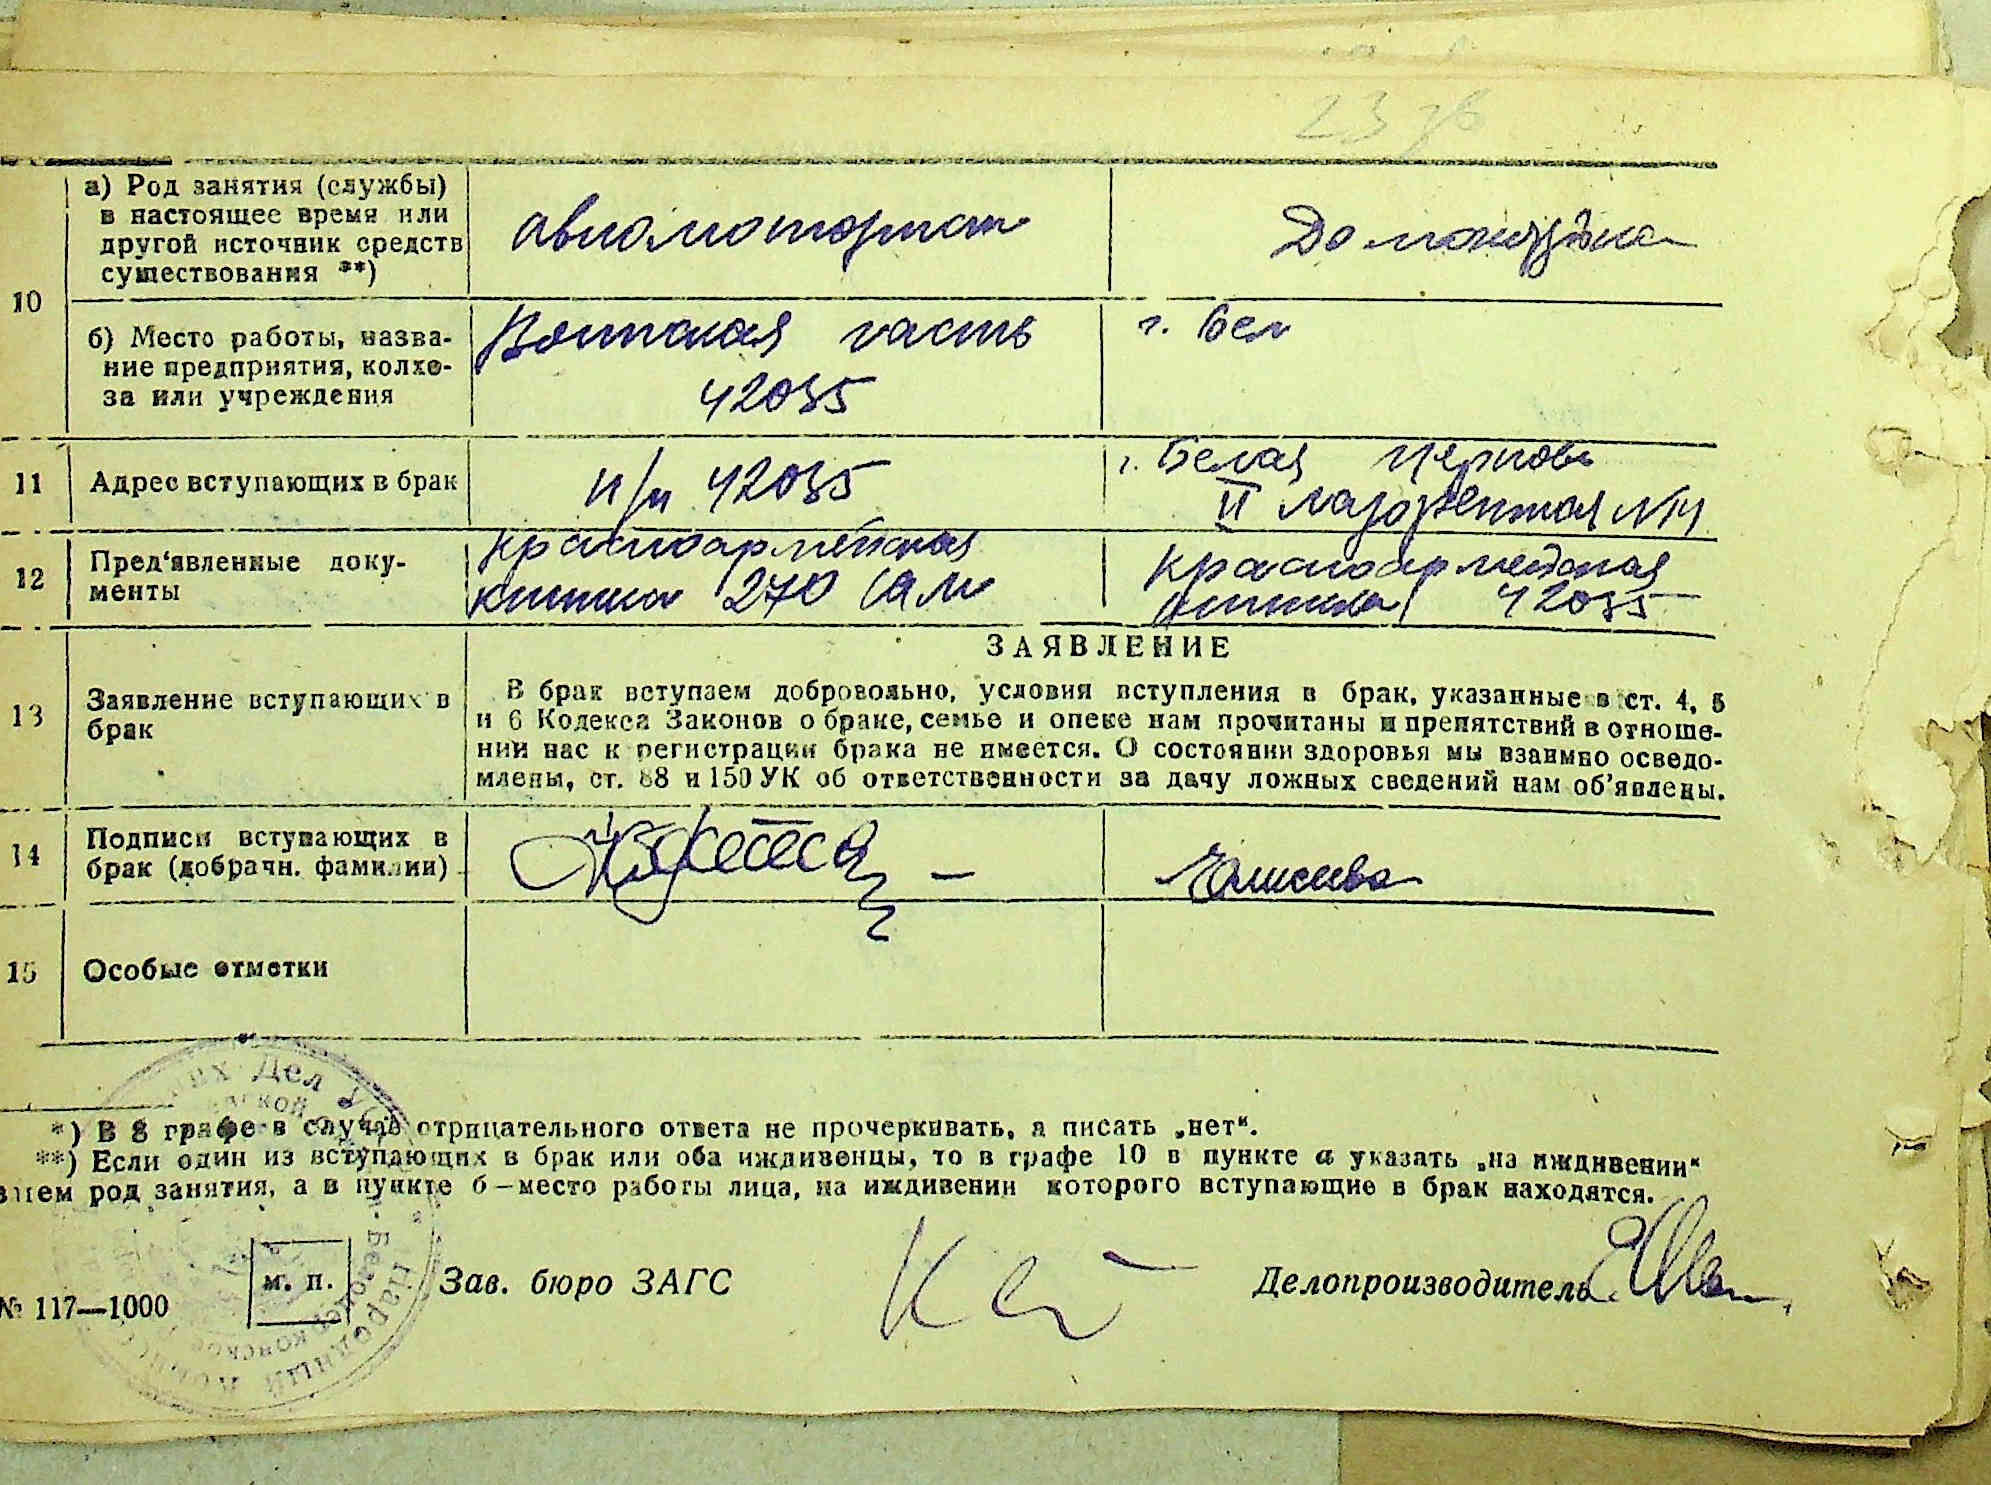 10
а) Род занятия (службы)
в настоящее время или
другой источник средств
существования **)
авиамоторист
Домохозяйка
б) Место работы, назва-
ние предприятия, колхо-
за или учреждения
Воинская часть
42035
г. Бел
11
Адрес вступающих в брак
п/п 42035
г. Белая Церковь
II
№
12
Пред‘явленные доку-
менты
красноармейская
книжка 270
красноармейская
книжка 42035
13
Заявление вступающих в
брак
ЗАЯВЛЕНИЕ
В брак вступаем добровольно, условия вступления в брак, указанные в ст. 4, 5
и 6 Кодекса Законов о браке, семье и опеке нам прочитаны и препятствий в отноше-
нии нас к регистрации брака не имеется. О состоянии здоровья мы взаимно осведо-
млены, ст. 88 и 150 УК об ответственности за дачу ложных сведений нам об’явлены.
14
Подписи вступающих в
брак (добрачн. фамилии)
Елисеева
15
Особые отметки
*) В 8 графе в случае отрицательного ответа не прочеркивать, а писать „нет“.
**) Если один из вступающих в брак или оба иждивенцы, то в графе 10 в пункте а указать „на иждивении“
род занятия, а в пункте б—место работы лица, на иждивении которого вступающие в брак находятся.
м. п.
Зав. бюро ЗАГС
Делопроизводитель
№ 117—1000